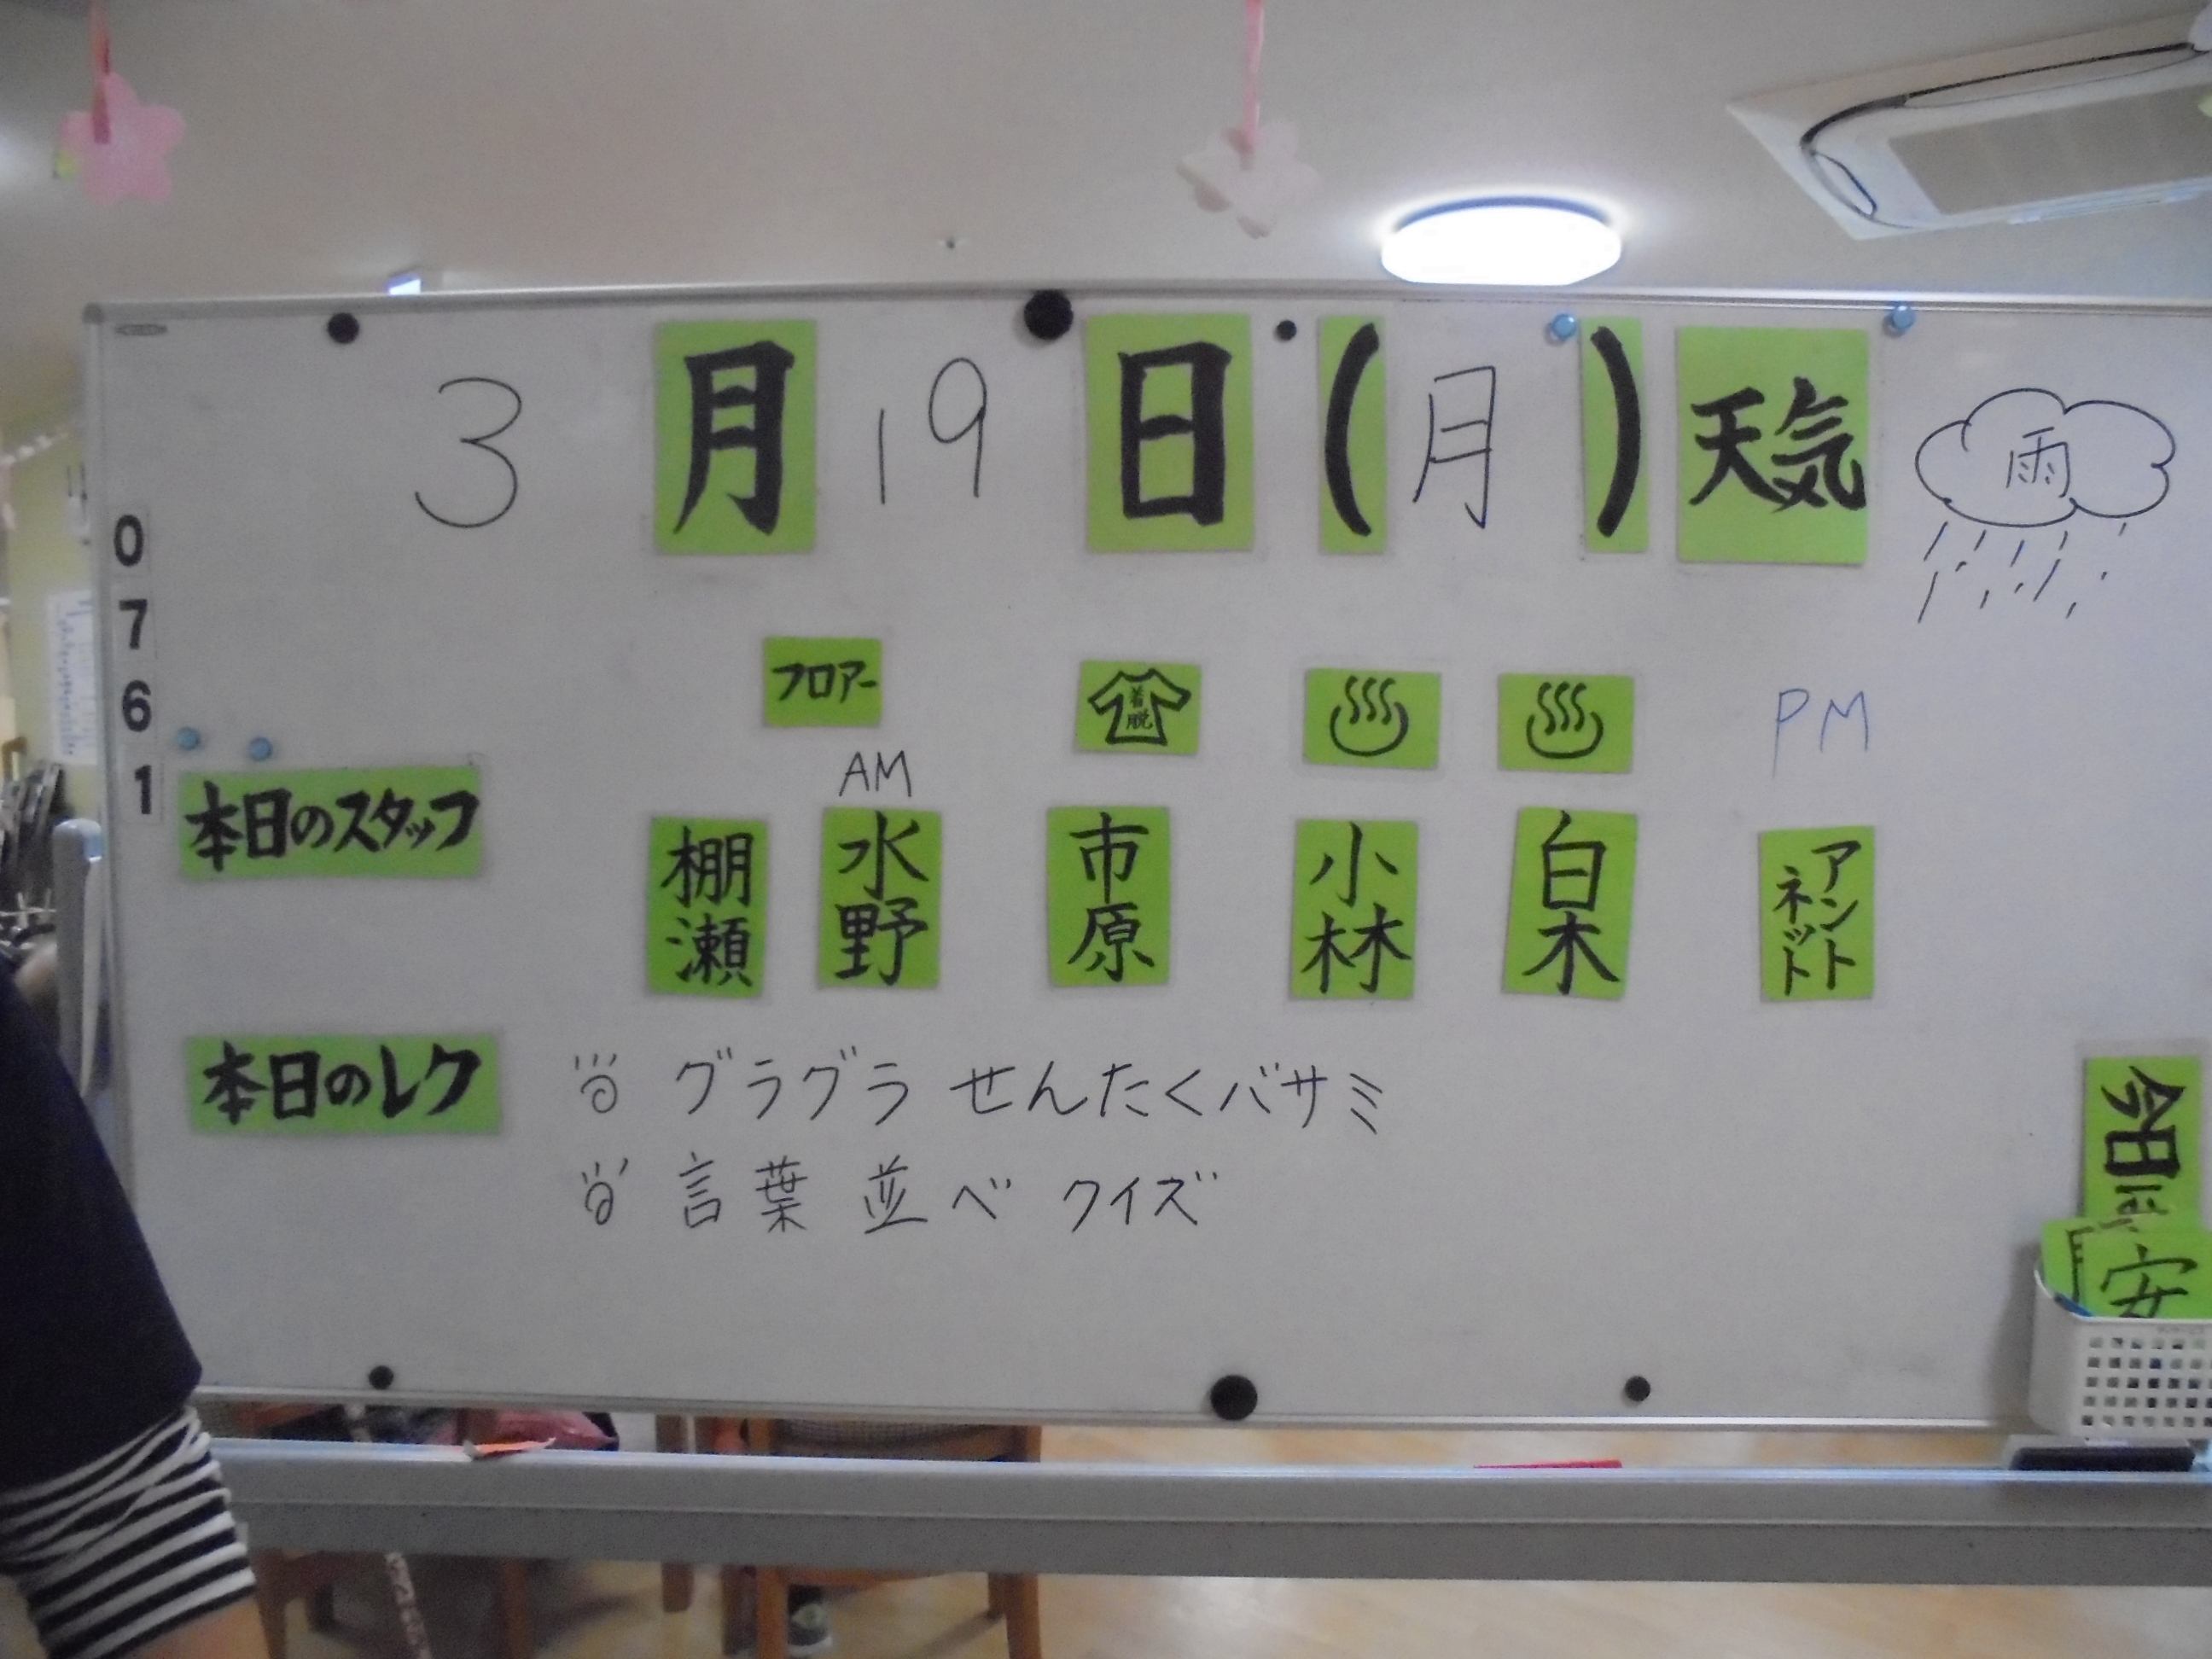 3月19日(月)天気 雨
0
7
6
1
フロアー
着脱
PM
AM
本日のスタッフ
棚瀬 水野 市原 小林 白木 アントネット
本日のレク
グラグラ せんたくバサミ
言葉 並べ クイズ
今日
安